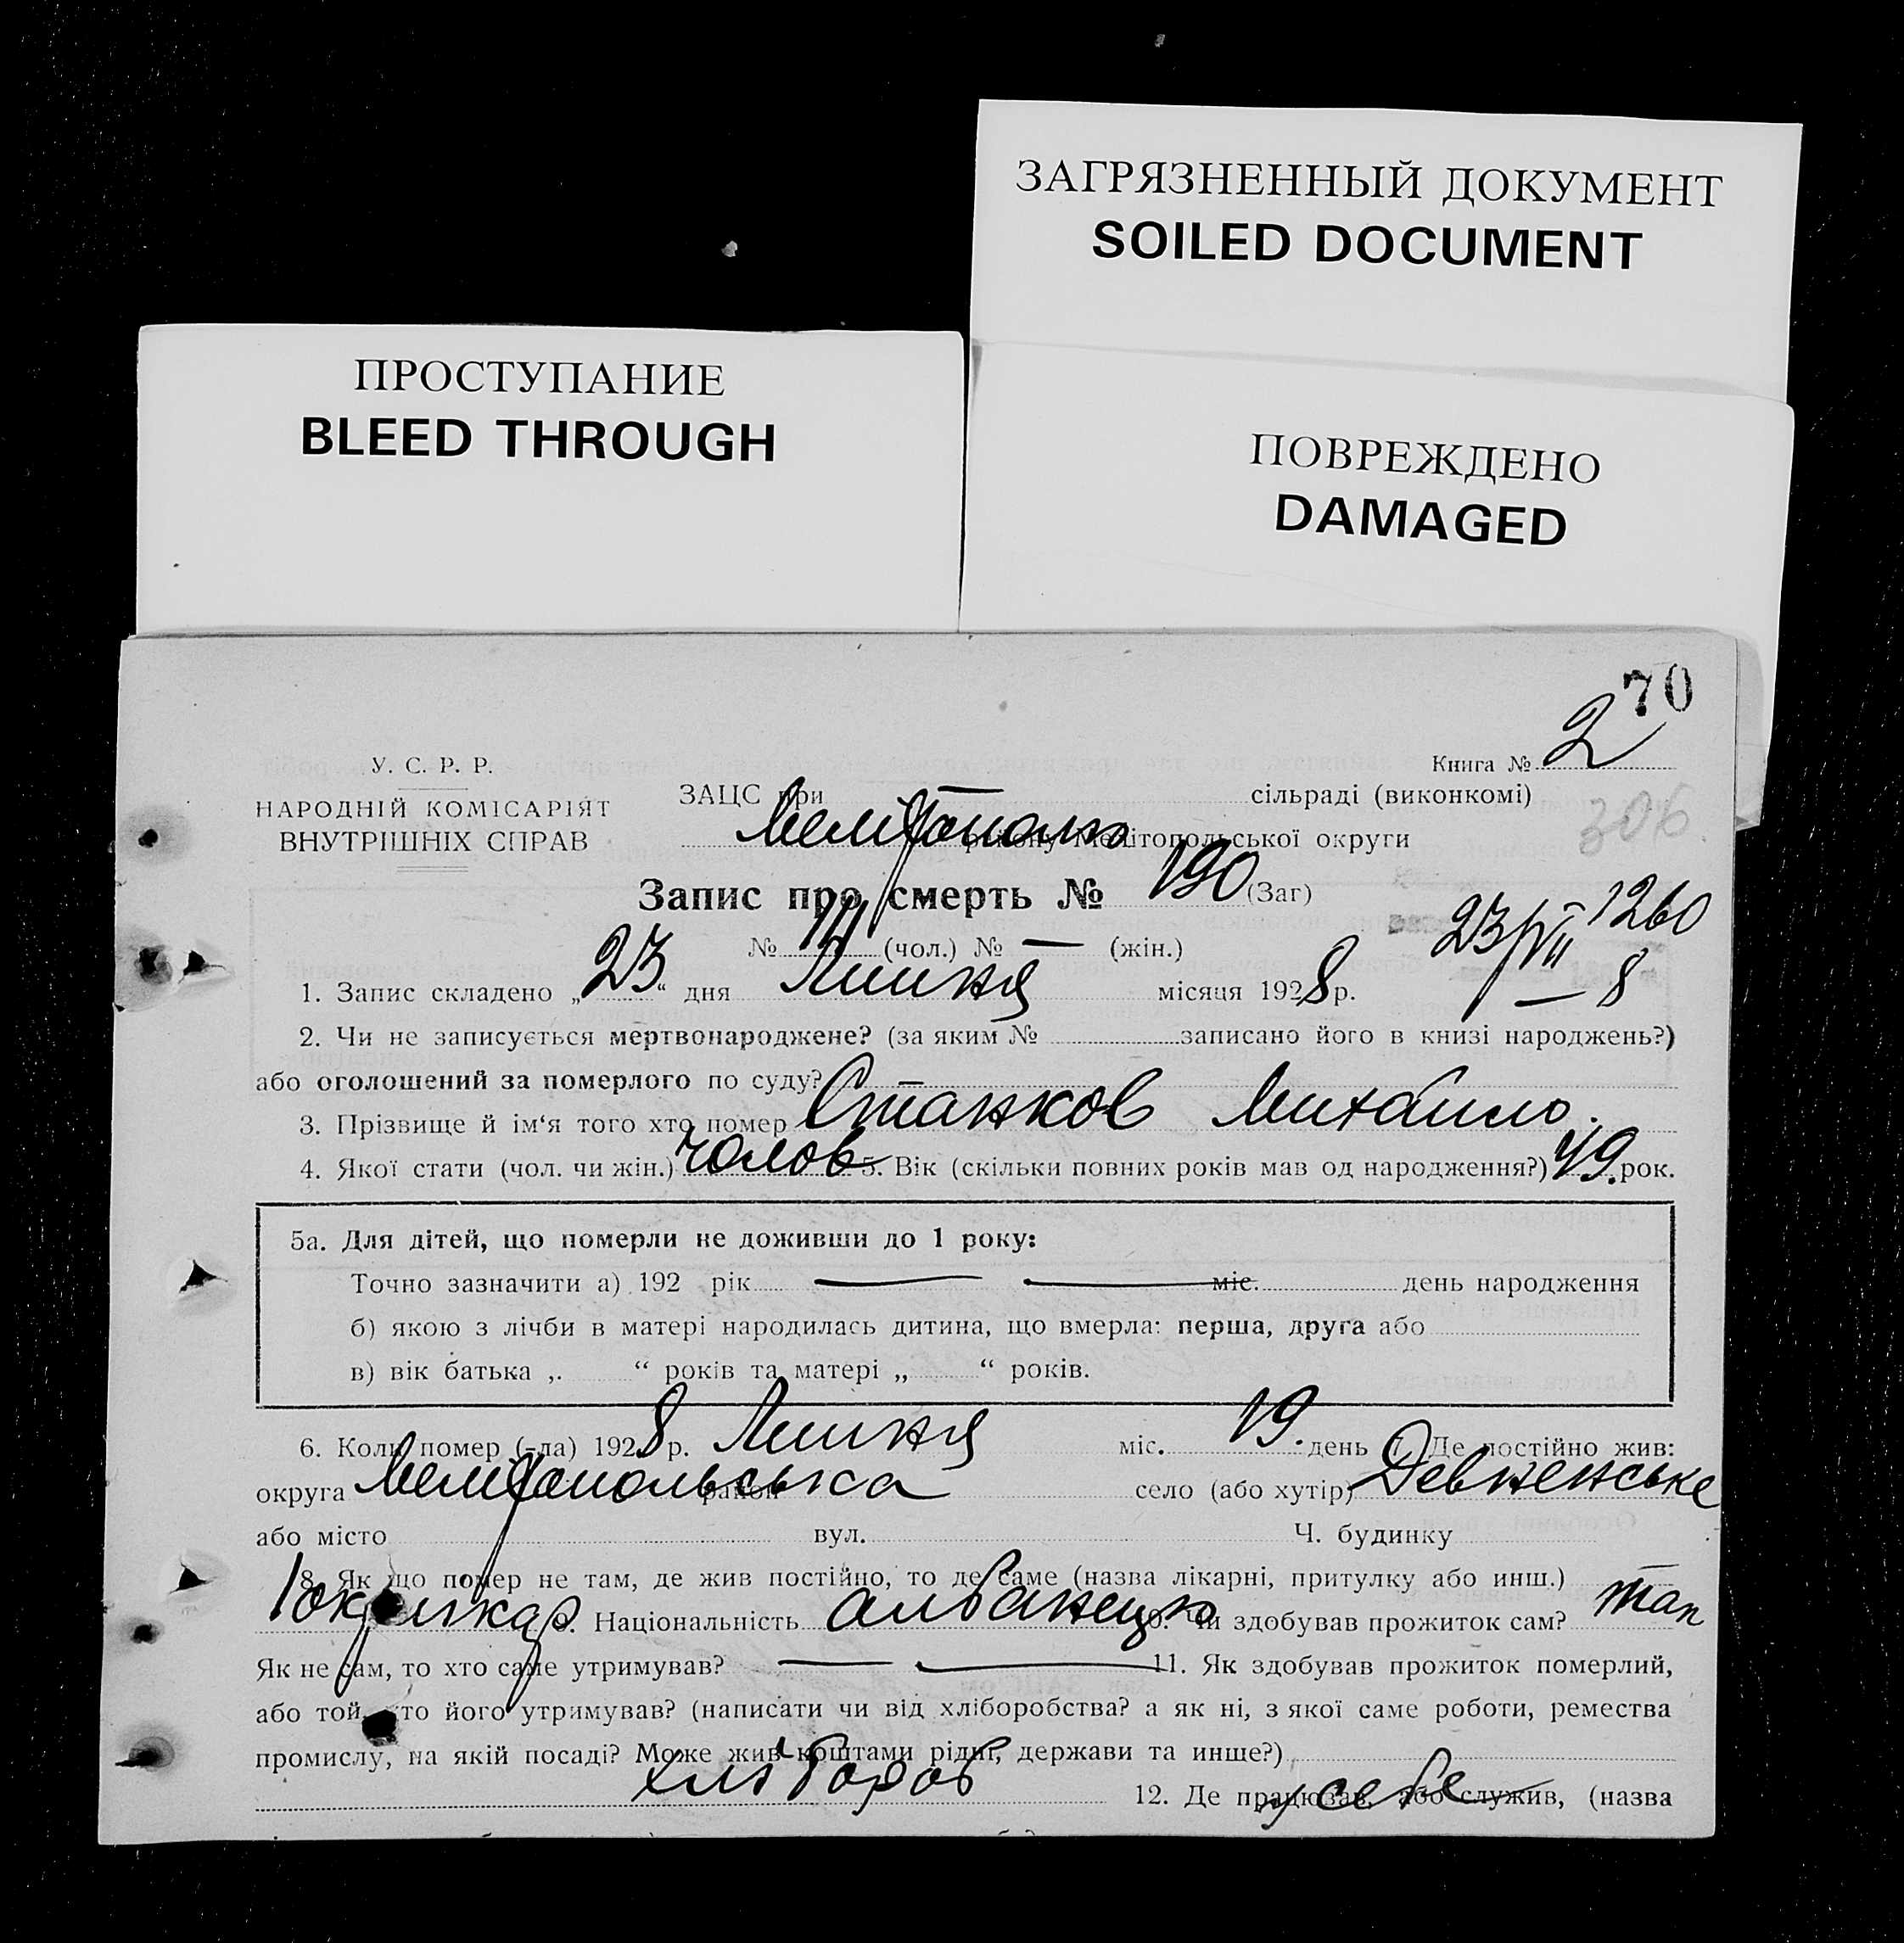 ЗАГРЯЗНЕННЫЙ ДОКУМЕНТ
SOILED DOCUMENT
ПРОСТУПАНИЕ
BLEED THROUGH
ПОВРЕЖДЕНО
DAMAGED
70
Книга № 2
У. С. Р. Р.
НАРОДНІЙ КОМІСАРІЯТ
ВНУТРІШНІХ СПРАВ
ЗАЦС при сільраді (виконкомі)
306
району Мелітопольської округи
Запис про смерть № 190 (Заг)
№ 111 (чол.) № — (жін.)
23/VII 1260
— 8
1. Запис складено „23“ дня Липня місяця 1928 р.
2. Чи не записується мертвонароджене? (за яким № записано його в книзі народжень?)
або оголошений за померлого по суду? —
3. Прізвище й ім‘я того хто помер Станков Михайло.
4. Якої стати (чол. чи жін.) чолов 5. Вік (скільки повних років мав од народження?) 49. рок.
5а. Для дітей, що померли не доживши до 1 року:
Точно зазначити а) 192 рік — — міс. день народження
б) якою з лічби в матері народилась дитина, що вмерла: перша, друга або
в) вік батька „ “ років та матері „ “ років.
6. Коли помер (-ла) 1928 р. Липня міс. 19. день 7. Де постійно жив:
округа Мелітопольська район село (або хутір) Девненське
або місто вул. Ч. будинку
8. Як що помер не там, де жив постійно, то де саме (назва лікарні, притулку або инш.) —
9. Національність албанець 10. Чи здобував прожиток сам? так
Як не сам, то хто саме утримував? — — 11. Як здобував прожиток померлий,
або той, хто його утримував? (написати чи від хліборобства? а як ні, з якої саме роботи, ремества
промислу, на якій посаді? Може жив коштами рідні, держави та инше?)
хлібороб 12. Де працював, або служив, (назва
у себе